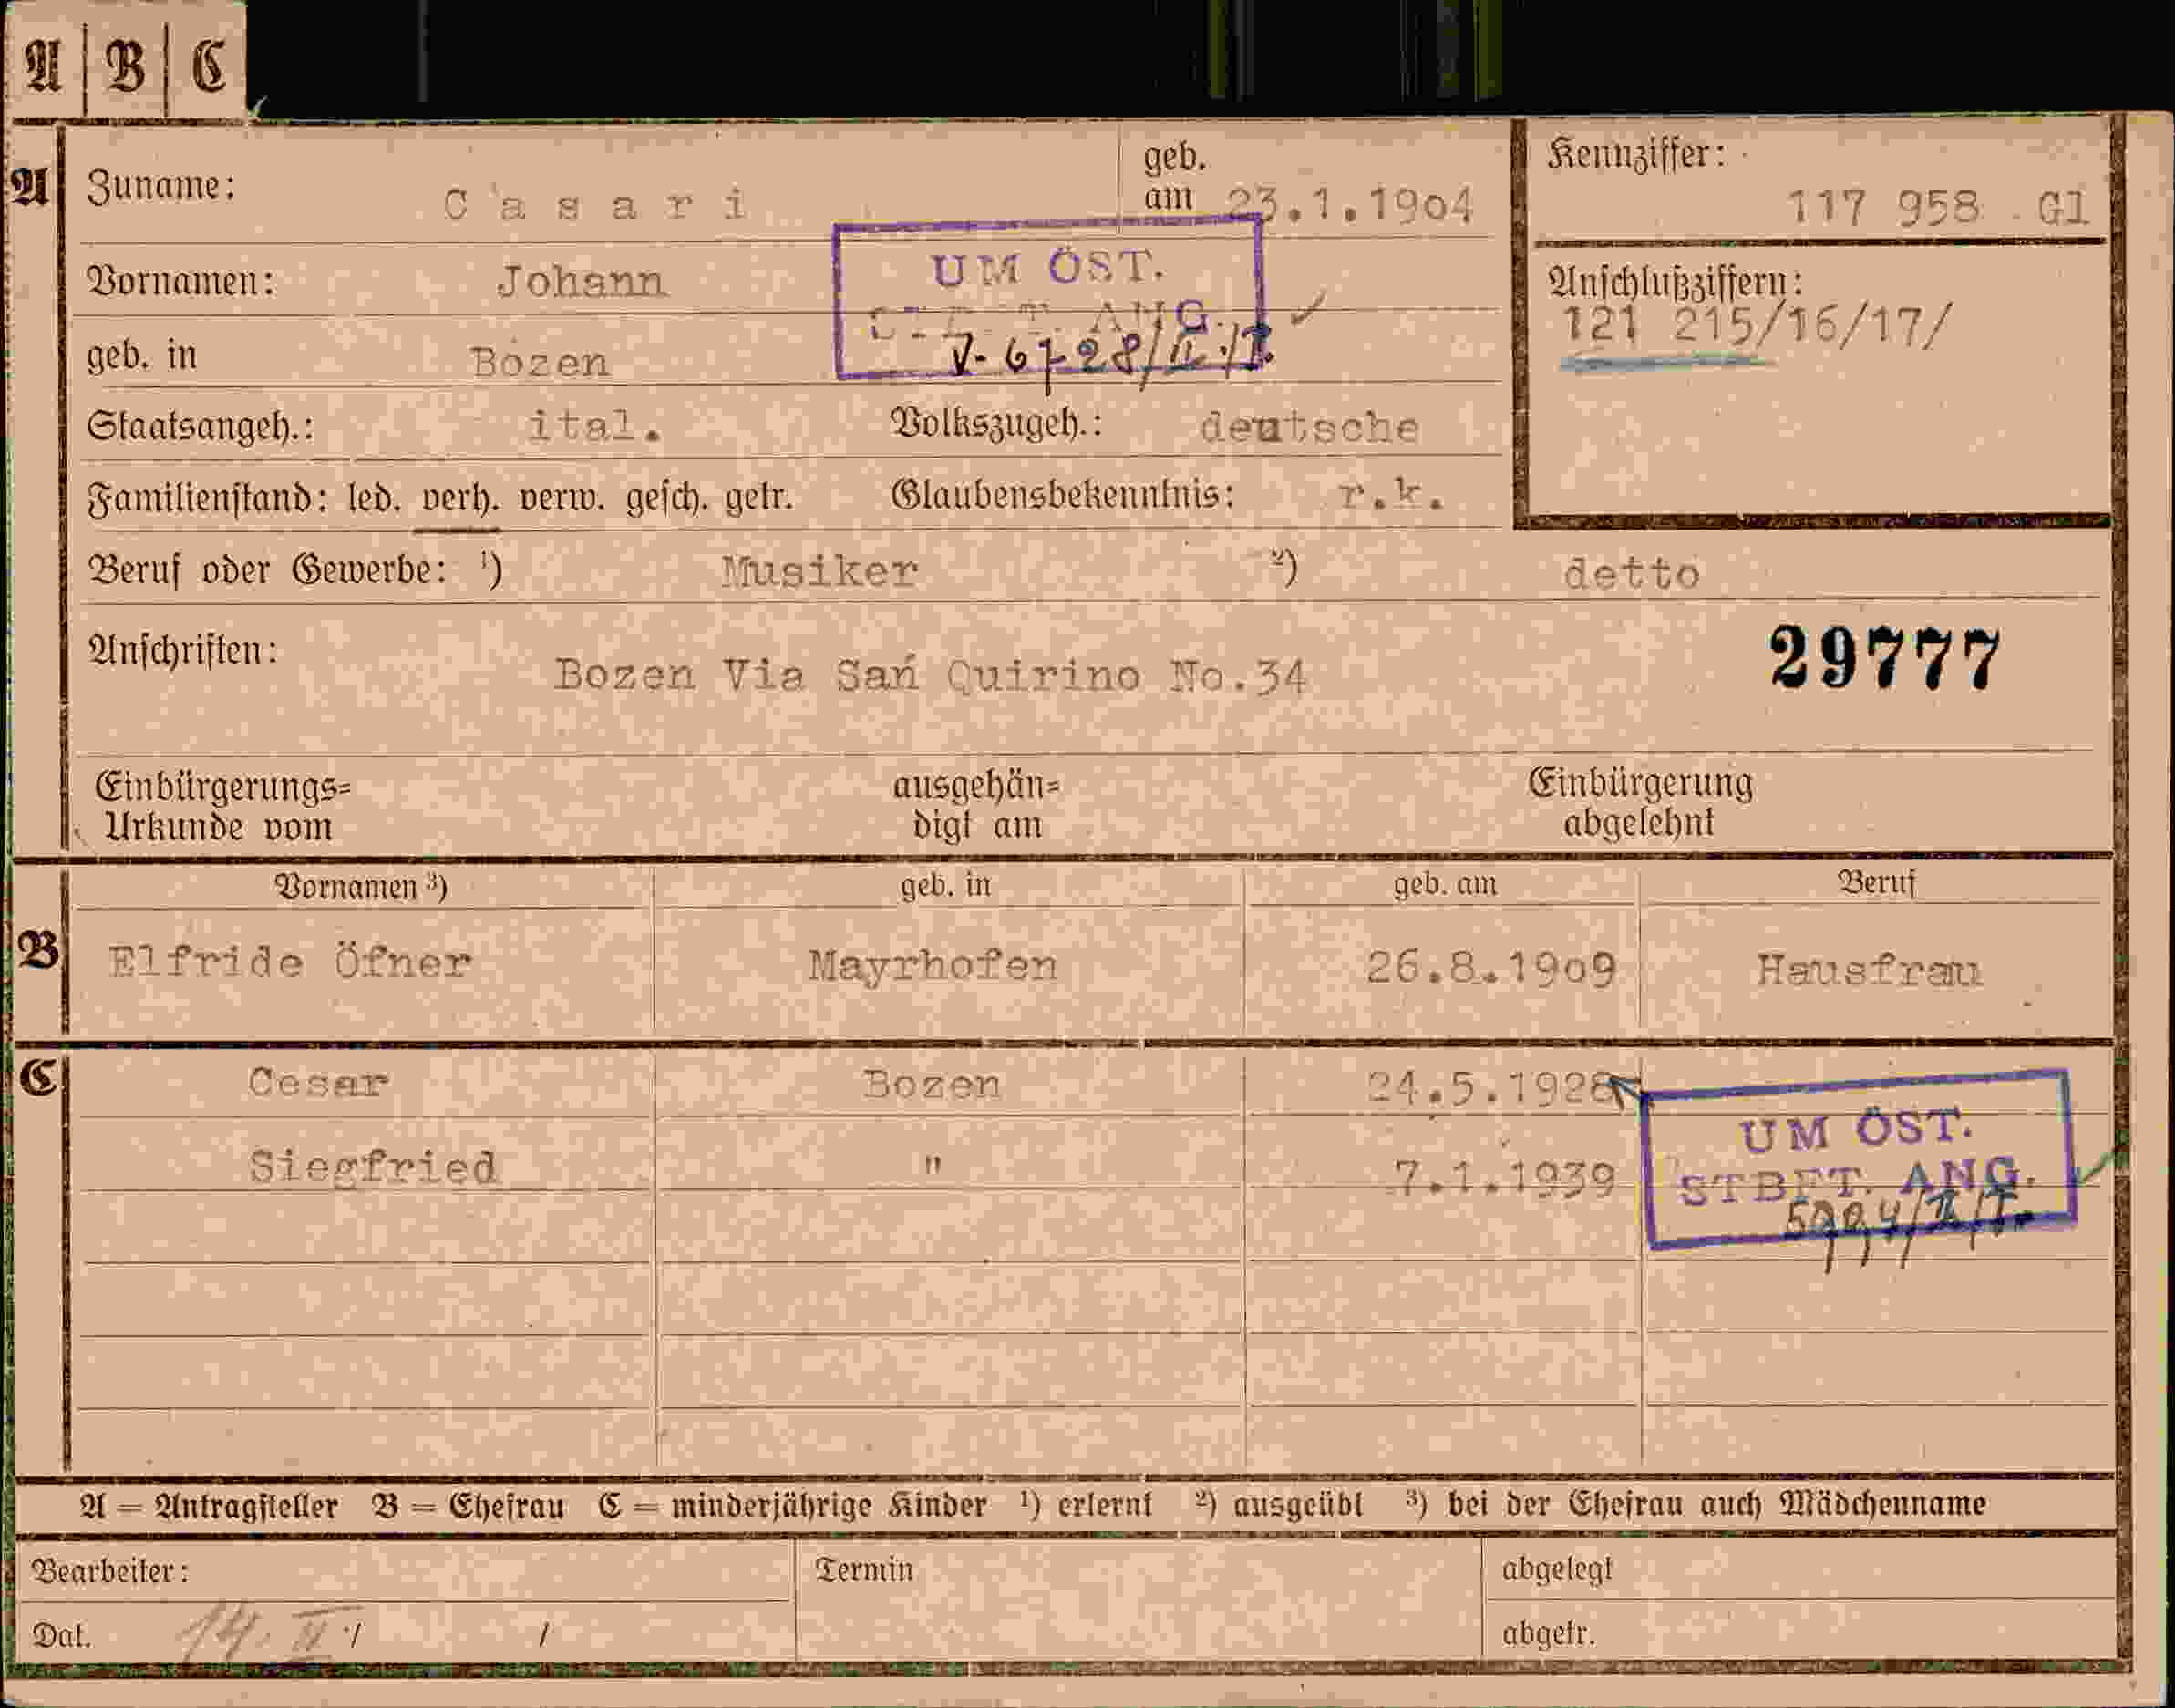 A | B | C
A
Zuname: Casari
geb. am 23.1.1904
Kennziffer: 117 958 Gl
Vornamen: Johann
UM ÖST.
ANG.
V-6728/II./I.
Anschlußziffern:
121 215/16/17/
geb. in Bozen
Staatsangeh.: ital. Volkszugeh.: deutsche
Familienstand: led. verh. verw. gesch. getr. Glaubensbekenntnis: r.k.
Beruf oder Gewerbe: ¹) Musiker ²) detto
Anschriften: Bozen Via San Quirino No.34
29777
Einbürgerungs= Urkunde vom
ausgehän= digt am
Einbürgerung abgelehnt
Vornamen ³) geb. in geb. am Beruf
B Elfride Öfner Mayrhofen 26.8.1909 Hausfrau
C Cesar Bozen 24.5.1928
Siegfried " 7.1.1939
UM ÖST.
STBFT. ANG.
A = Antragsteller B = Ehefrau C = minderjährige Kinder ¹) erlernt ²) ausgeübt ³) bei der Ehefrau auch Mädchenname
Bearbeiter: Termin abgelegt
Dat. 14. II ./ / abgetr.